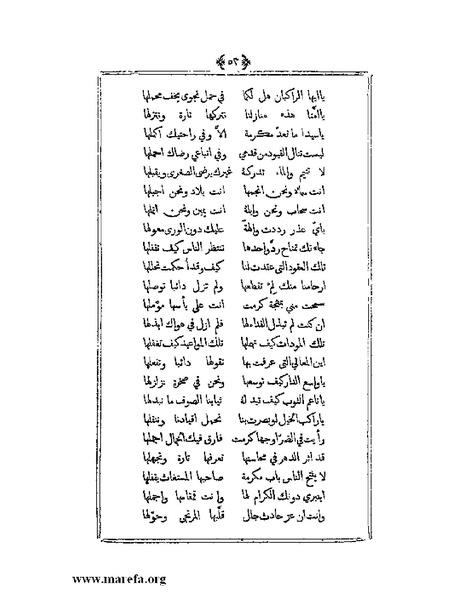 ﴿٥٢﴾
ياايها الراكبان هل لكما في حمل نجوى يخف محملها
ياأمّنا هذه منازلنا نتركها تارة وننزلها
ياسيدا ما تعدّ مكرمة الاّ وفي راحتيك اكملها
ليست تنال القيود من قدمي وفي اتباعي رضاك احملها
لا تتيم والماء تدركه غيرك يرضى الصغرى ويقبلها
انت سماء ونحن انجمها انت بلاد ونحن اجبلها
انت سحاب ونحن وابله انت يمين ونحن انملها
بايّ عذر رددت والهة عليك دون الورى معولها
جاءتك تمتاح ردّ واحدها تنتظر الناس كيف تقفلها
تلك العقود التي عقدت لنا كيف وقد أحكمت تحللها
ارحامنا منك لِمْ تقطعها ولم تزل دائبا توصلها
سمحت مني بمهجة كرمت انت على يأسها مؤملها
ان كنت لم تبذل الفداء لها فلم ازل في هواك ابذلها
تلك المودات كيف تهملها تلك المواعيد كيف تغفلها
اين المعالي التي عرفت بها تقولها دائبا وتفعلها
ياواسع الدار كيف توسعها ونحن في صخرة نزلزلها
ياناعم الثوب كيف تبدله ثيابنا الصوف ما نبدلها
ياراكب الخيل لو بصرت بنا نحمل اقيادنا وننقلها
رأيت في الضر اوجها كرمت فارق فيك الجمال اجملها
قد اثر الدهر في محاسنها تعرفها تارة وتجهلها
لا يفتح الناس باب مكرمة صاحبها المستغاث يقفلها
اينبري دونك الكرام لها وانت قمقامها واجملها
وانت ان عز حادث جلل قلّبها المرتجى وحوّلها
www.marefa.org